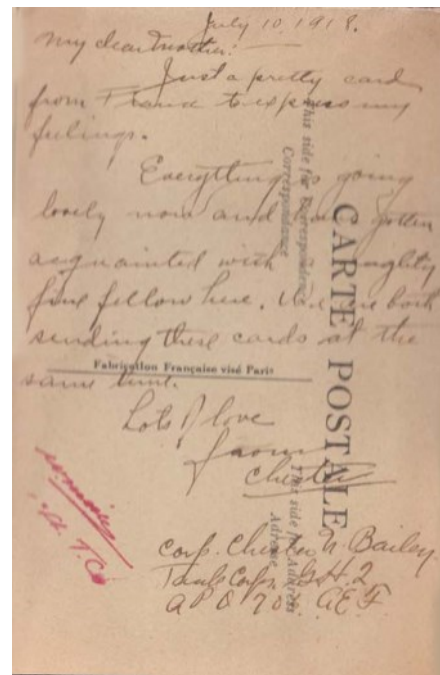 July 10, 1918.
My dear Mother:
Just a pretty card
from France to express my
feelings.
Everything is going
lovely now and gotten
acquainted with a mighty
fine fellow here. We are both
sending these cards at the
same time.
Lots of love
from
Chester
Corp. Chester N. Bailey
Tank Corps.
A P O 70 A.E.F.
CARTE POSTALE
This side for Correspondence
Correspondance
Fabrication Française visé Paris
This side for Address
Adresse